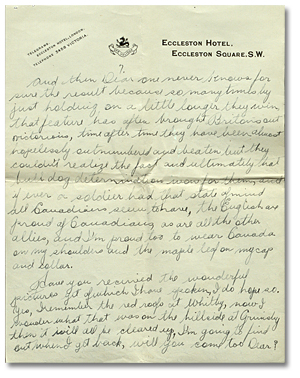 TELEGRAMS
ECCLESTON HOTEL, LONDON.
TELEPHONE 8489 VICTORIA.
ECCLESTON HOTEL,
ECCLESTON SQUARE, S.W.
7.
And then Dear one never knows for
sure the result because so many times by
just holding on a little longer they win
that feature has often brought Britons out
victorious, time after time they have been almost
hopelessly outnumbered and beaten but they
couldn't realize the fact and ultimately that
bull dog determination won for them, and
if ever a soldier had that state of mind
all Canadians seem to have, the English are
proud of Canadians, so are all the other
allies, and I'm proud too to wear Canada
on my shoulders and the maple leaf on my cap
and collar.
Have you received the wonderful
pictures yet of which I have spoken, I do hope so.
Yes, I remember the red rose at Whitby, now I
wonder what that was on the hillside at Grimsby
then it will all be cleared up, I'm going to find
out when I get back, will you come too Dear?